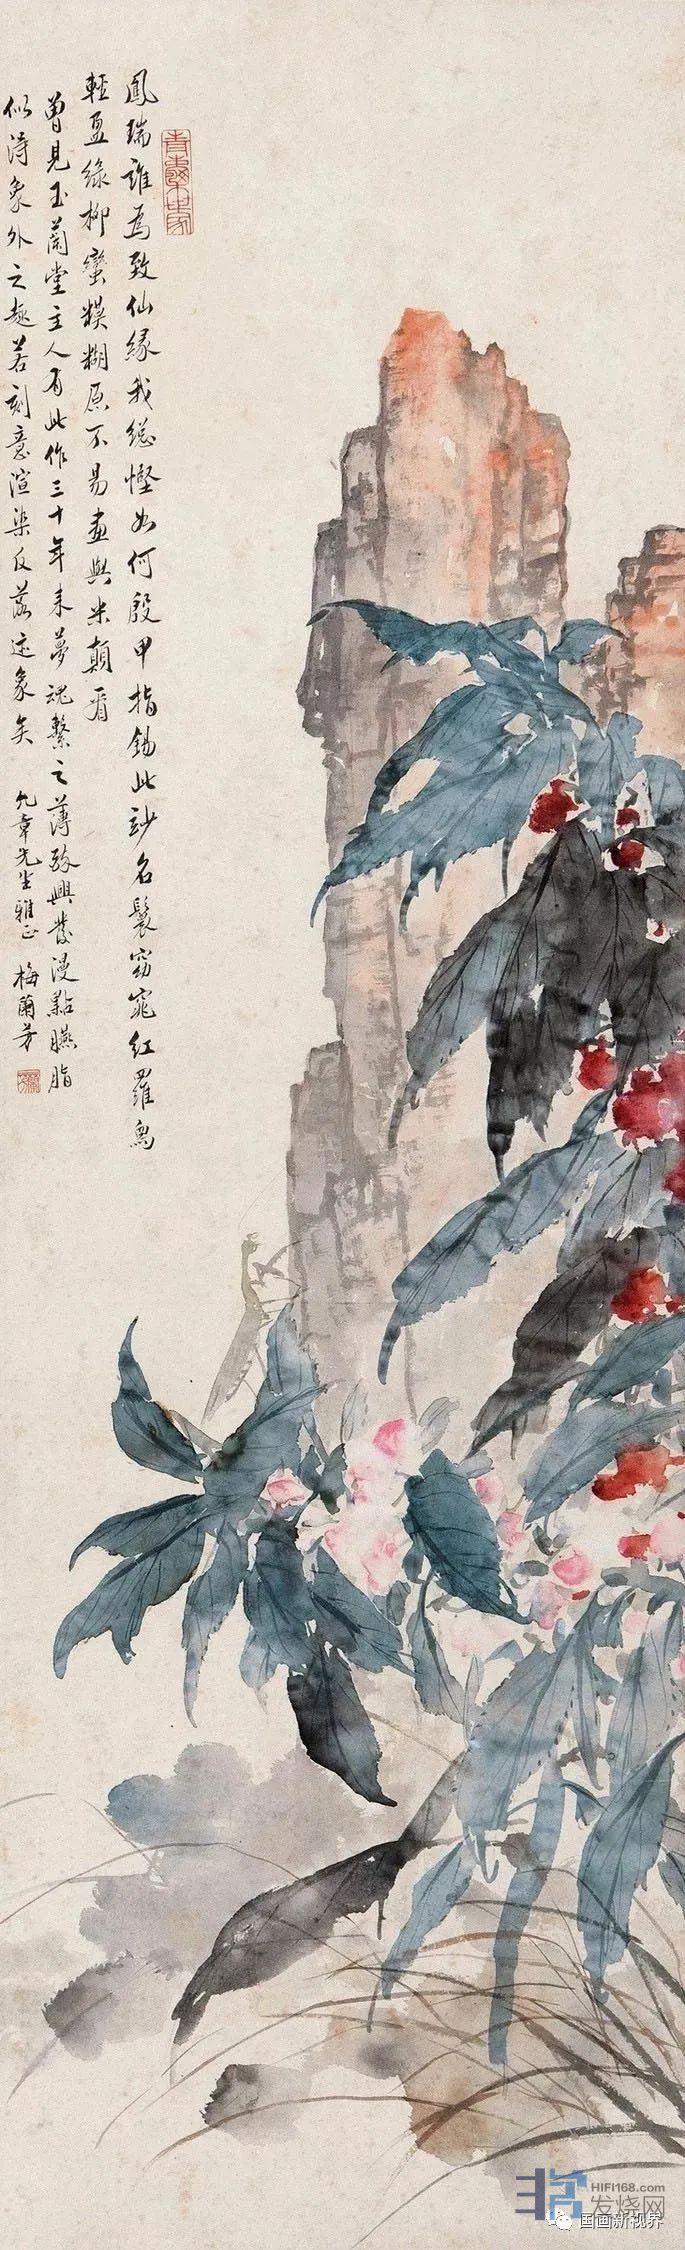 鳳瑞誰為致仙緣我總慳如何殷甲指錫此妙名鬟窈窕紅羅鳥
輕盈綠柳蠻糢糊原不易畫與米顛看
曾見玉蘭堂主人有此作三十年來夢魂繫之薄致興發漫點臙脂
似得象外之趣若刻意渲染反落迹象矣 九章先生雅正 梅蘭芳
HIFI168.com
发烧网
国画新视界